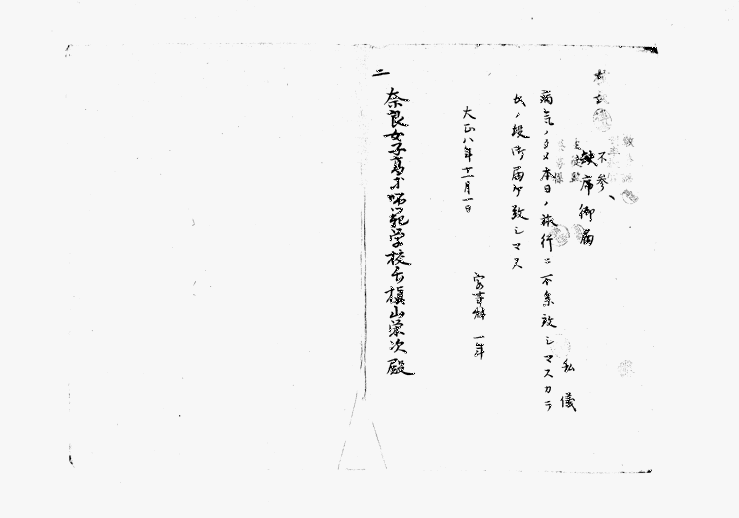 不参、
欠席御届
私儀
病気ノタメ本日ノ旅行ニ不参致シマスカラ
此ノ段御届ケ致シマス
大正八年十一月一日
家事科 一年
奈良女子高等師範学校長槇山栄次殿
二